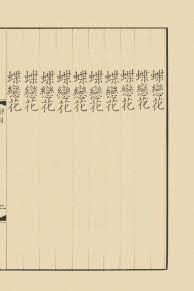 蝶戀花
蝶戀花
蝶戀花
蝶戀花
蝶戀花
蝶戀花
蝶戀花
蝶戀花
蝶戀花
蝶戀花